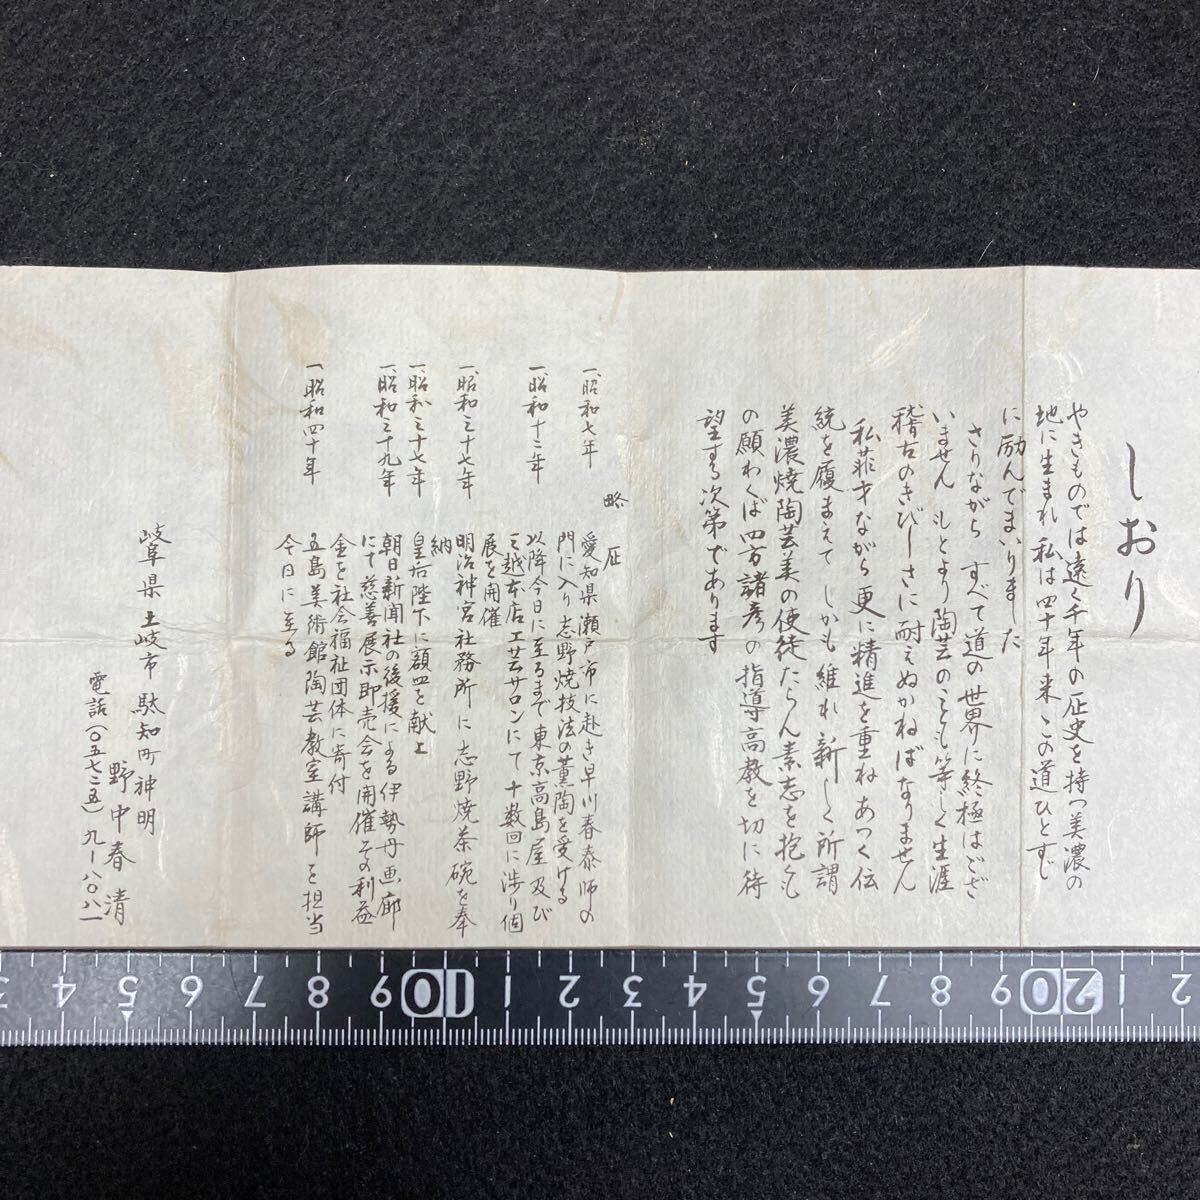 しおり
やきものでは遠く千年の歴史を持つ美濃の
地に生まれ 私は四十年来この道ひとすじ
に励んでまいりました
さりながら すべて道の世界に終極はござ
いません もとより陶芸のことも等しく生涯
稽古のきびしさに耐えぬかねばなりません
私菲才ながら更に精進を重ね あつく伝
統を履まえて しかも維れ新しく所謂
美濃焼陶芸美の使徒たらん素志を抱くも
の願わくば四方諸彦の指導高教を切に待
望する次第であります
略歴
一、昭和七年 愛知県瀬戸市に赴き早川春泰師の
門に入り志野焼技法の薫陶を受ける
一、昭和十二年 以降今日に至るまで東京高島屋及び
三越本店工芸サロンにて十数回に渉り個
展を開催
一、昭和三十七年 明治神宮社務所に志野焼茶碗を奉
納
一、昭和三十七年 皇后陛下に額皿を献上
一、昭和三十九年 朝日新聞社の後援による伊勢丹画廊
にて慈善展示即売会を開催その利益
金を社会福祉団体に寄付
一、昭和四十年 五島美術館陶芸教室講師を担当
今日に至る
岐阜県土岐市駄知町神明
野中春清
電話(〇五七二五)九ー八〇八一
3 4 5 6 7 8 9 10 1 2 3 4 5 6 7 8 9 20 1 2